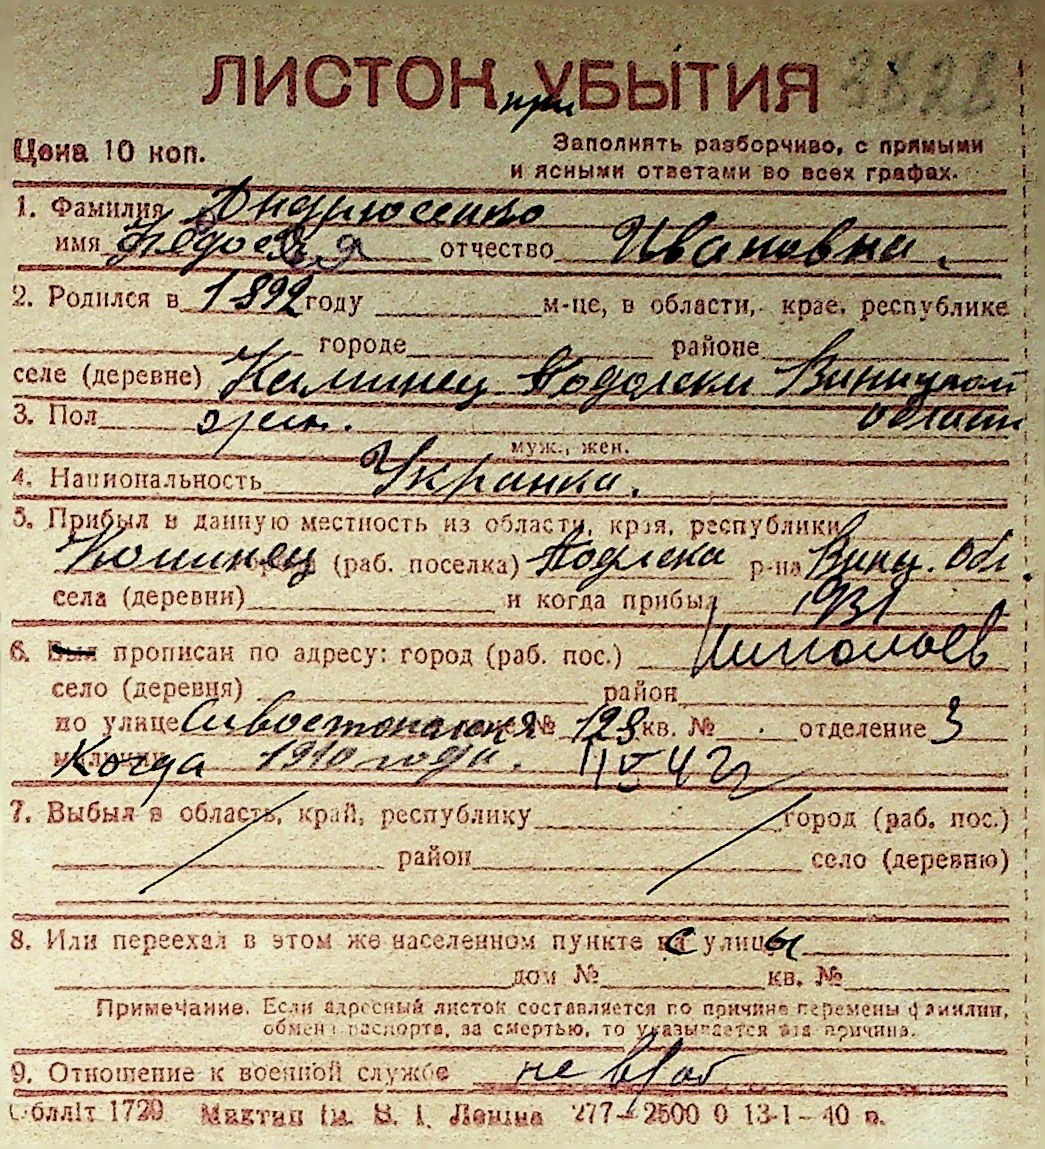 ЛИСТОК УБЫТИЯ
при
Цена 10 коп.
Заполнять разборчиво, с прямыми
и ясными ответами во всех графах.
1. Фамилия Андрюсенко
имя Федосья отчество Ивановна.
2. Родился в 1892 году м-це, в области, крае, республике
городе районе
селе (деревне) Каминец Подолски Виницкой
3. Пол жен. области
муж., жен.
4. Национальность Украинка.
5. Прибыл в данную местность из области, края, республики
Коминец (раб. поселка) р-на Виниц. Обл.
села (деревни) и когда прибыл 1931
6. Был прописан по адресу: город (раб. пос.) Николаев
село (деревня) район
по улице № 123 кв. № отделение 3
Когда 1940 года.
7. Выбыл в область, край, республику город (раб. пос.)
район село (деревню)
8. Или переехал в этом же населенном пункте с улицы
дом № кв. №
Примечание. Если адресный листок составляется по причине перемены фамилии,
обмена паспорта, за смертью, то указывается эта причина.
9. Отношение к военной службе не в/об
Обллiт 1720 Миктип iм. В. I. Ленiна 277—2500 0 13-1-40 р.